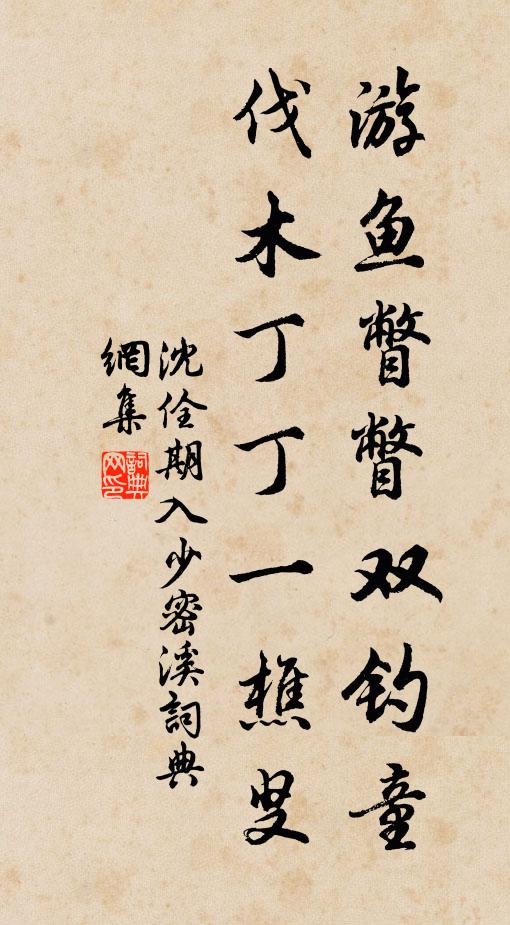 游鱼瞥瞥双钓童
伐木丁丁一樵叟
沈佺期入少密溪詞典
網集
詞典
网印